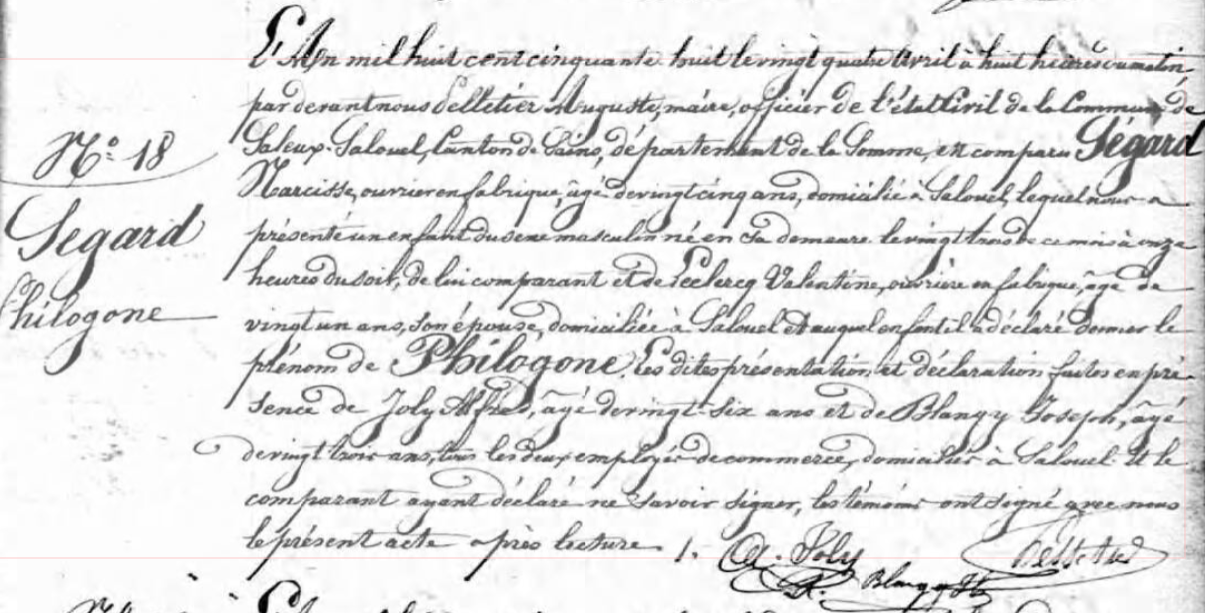 N° 18
Segard
Philogone
L'An mil huit cent cinquante huit le vingt quatre Avril à huit heures du matin,
par devant nous Pelletier Auguste, maire, officier de l'état Civil de la Commune de
Saleux-Salouel, Canton de Sains, département de la Somme, est comparu Ségard
Narcisse, ouvrier en fabrique, âgé de vingt cinq ans, domicilié à Salouel, lequel nous a
présenté un enfant du sexe masculin né en sa demeure le vingt trois de ce mois à onze
heures du soir, de lui comparant et de Leclercq Valentine, ouvrière en fabrique, âgé de
vingt un ans, son épouse, domiciliée à Salouel et auquel enfant il a déclaré donner le
prénom de Philogone. Les dites présentation et déclaration faites en pré-
sence de Joly Alfred, âgé de vingt-six ans et de Blangy Joseph, âgé
de vingt trois ans, tous les deux employés de commerce, domiciliés à Salouel. Et le
comparant ayant déclaré ne savoir signer, les témoins ont signé avec nous
le présent acte après lecture.
A. Joly
Blangy